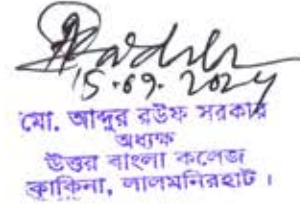 15.09.2024
মো. আব্দুর রউফ সরকার
অধ্যক্ষ
উত্তর বাংলা কলেজ
কাকিনা, লালমনিরহাট।